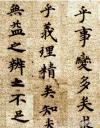 乎事變多矣
乎義理精矣知
無益之辨不足